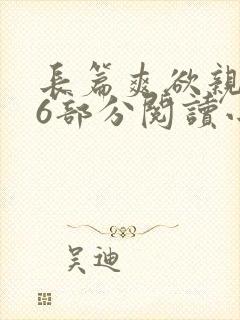 長篇爽欲親
6部分閱讀小
吴迪